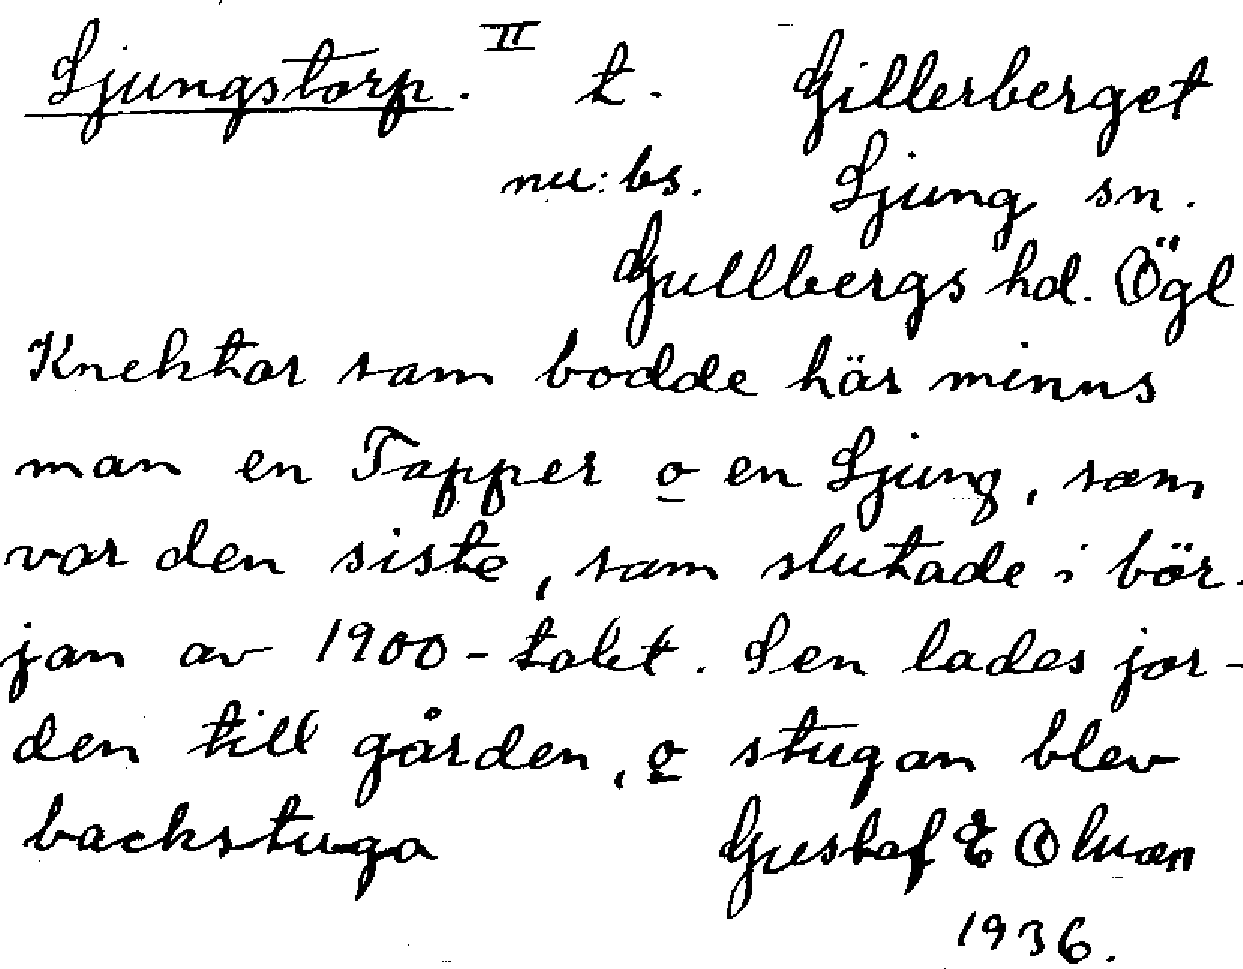 Ljungstorp. II t. Gillerberget
nu: bs. Ljung sn.
Gullbergs hd. Ögl
Knektar som bodde här minns
man en Tapper o en Ljung, som
var den siste, som slutade i bör-
jan av 1900-talet. Sen lades jor-
den till gården, o stugan blev
backstuga Gustaf E Olson
1936.